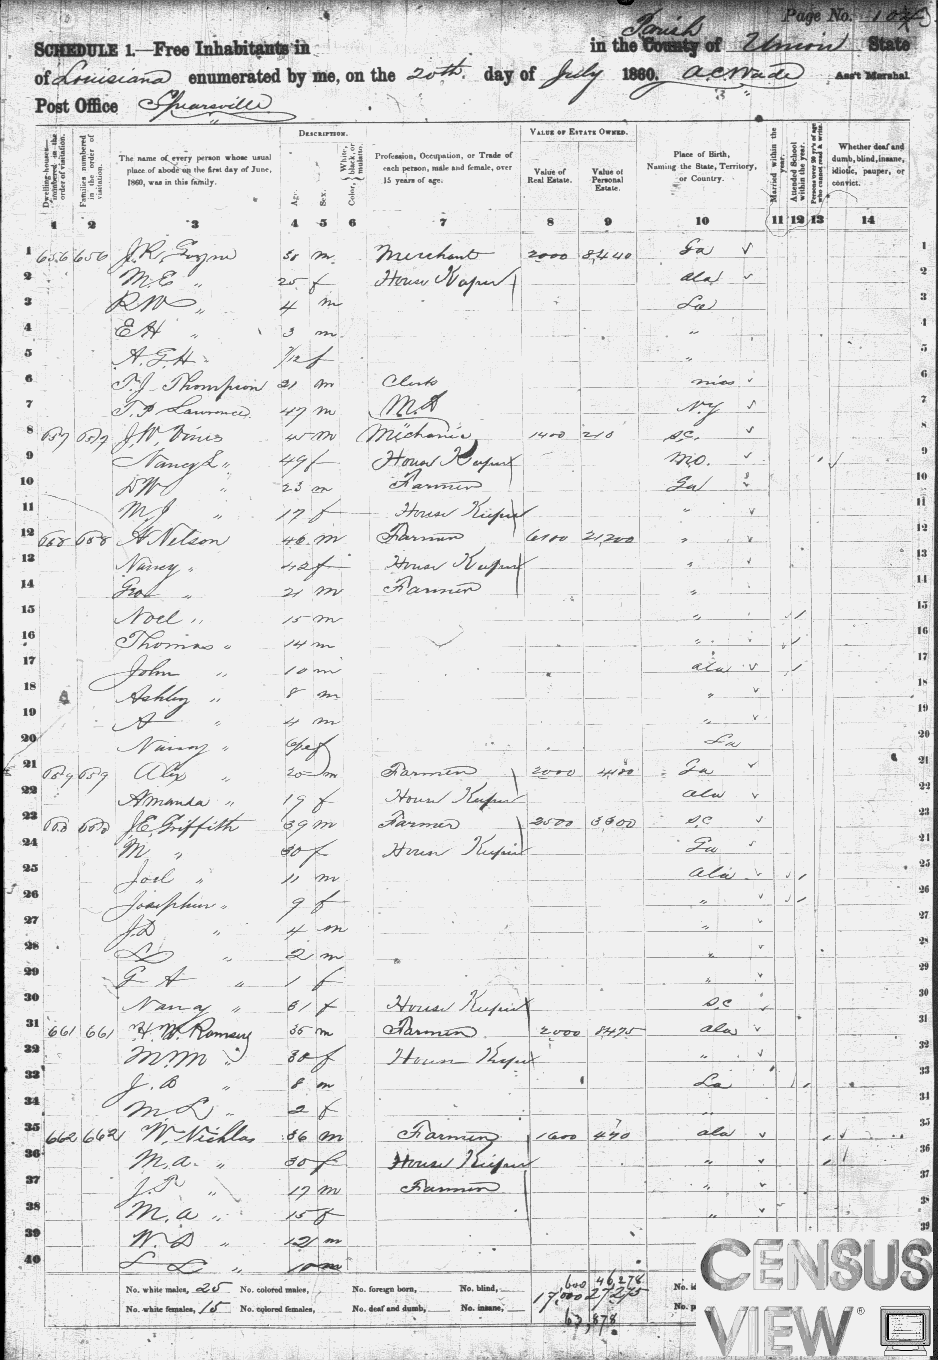 Page No. 104
SCHEDULE 1.—Free Inhabitants in in the Parish County of Union State
of Louisiana enumerated by me, on the 20th day of July 1860. A C Wade Ass't Marshal.
Post Office Spearsville
Dwelling-houses—numbered in the order of visitation.
Families numbered in the order of visitation.
The name of every person whose usual place of abode on the first day of June, 1860, was in this family.
DESCRIPTION.
Age.
Sex.
Color, White, black, or mulatto.
Profession, Occupation, or Trade of each person, male and female, over 15 years of age.
VALUE OF ESTATE OWNED.
Value of Real Estate.
Value of Personal Estate.
Place of Birth, Naming the State, Territory, or Country.
Married within the year.
Attended School within the year.
Persons over 20 y'rs of age who cannot read & write.
Whether deaf and dumb, blind, insane, idiotic, pauper, or convict.
1 2 3 4 5 6 7 8 9 10 11 12 13 14
1 656 656 J. R. Goyne 38 m Merchant 2000 8,440 Ga 1
2 M. E " 25 f House Keeper Ala 2
3 R W " 4 m La 3
4 E H " 3 m " 4
5 A. G. H " /12 f " 5
6 T. J. Thompson 21 m Clerk Miss 6
7 T. P Lawrence 47 m M.D N.y 7
8 657 657 J. W. Vines 45 m Mechanic 1400 210 S.C. 8
9 Nancy L " 49 f House Keeper No. 9
10 D W " 23 m Farmer Ga 10
11 M. J " 17 f House Keeper " 11
12 658 658 H Nelson 46 m Farmer 6100 21,200 " 12
13 Nancy " 42 f House Keeper " 13
14 Geo " 21 m Farmer " 14
15 Noel " 15 m " 1 15
16 Thomas " 14 m " 1 16
17 John " 10 m Ala 1 17
18 Ashley " 8 m " 18
19 A " 4 m " 19
20 Nancy " f La 20
21 659 659 Alex " 20 m Farmer 2000 4400 Ga 21
22 Amanda " 19 f House Keeper Ala 22
23 660 660 J. E. Griffith 39 m Farmer 2500 3300 S C 23
24 M " 30 f House Keeper Ga 24
25 Joel " 11 m Ala 1 25
26 Josephine " 9 f " 1 26
27 J. D " 4 m " 27
28 L " 2 m " 28
29 G A " 1 f " 29
30 Nancy " 31 f House Keeper S C 30
31 661 661 H. W. Ramsey 35 m Farmer 2000 8475 Ala 31
32 M. M " 30 f House Keeper " 32
33 J. B " 8 m La 1 33
34 M L " 2 f " 34
35 662 662 W. Nichlas 36 m Farmer 1600 470 Ala 1 35
36 M. A. " 30 f House Keeper " 1 36
37 J. P " 17 m Farmer " 37
38 M. A " 15 f " 38
39 W. D " 12 m 39
40 L L " 10 m
No. white males, 25 No. colored males, No. foreign born, No. blind,
No. white females, 15 No. colored females, No. deaf and dumb, No. insane,
600 46,278
17,000 27,275
CENSUS
VIEW®